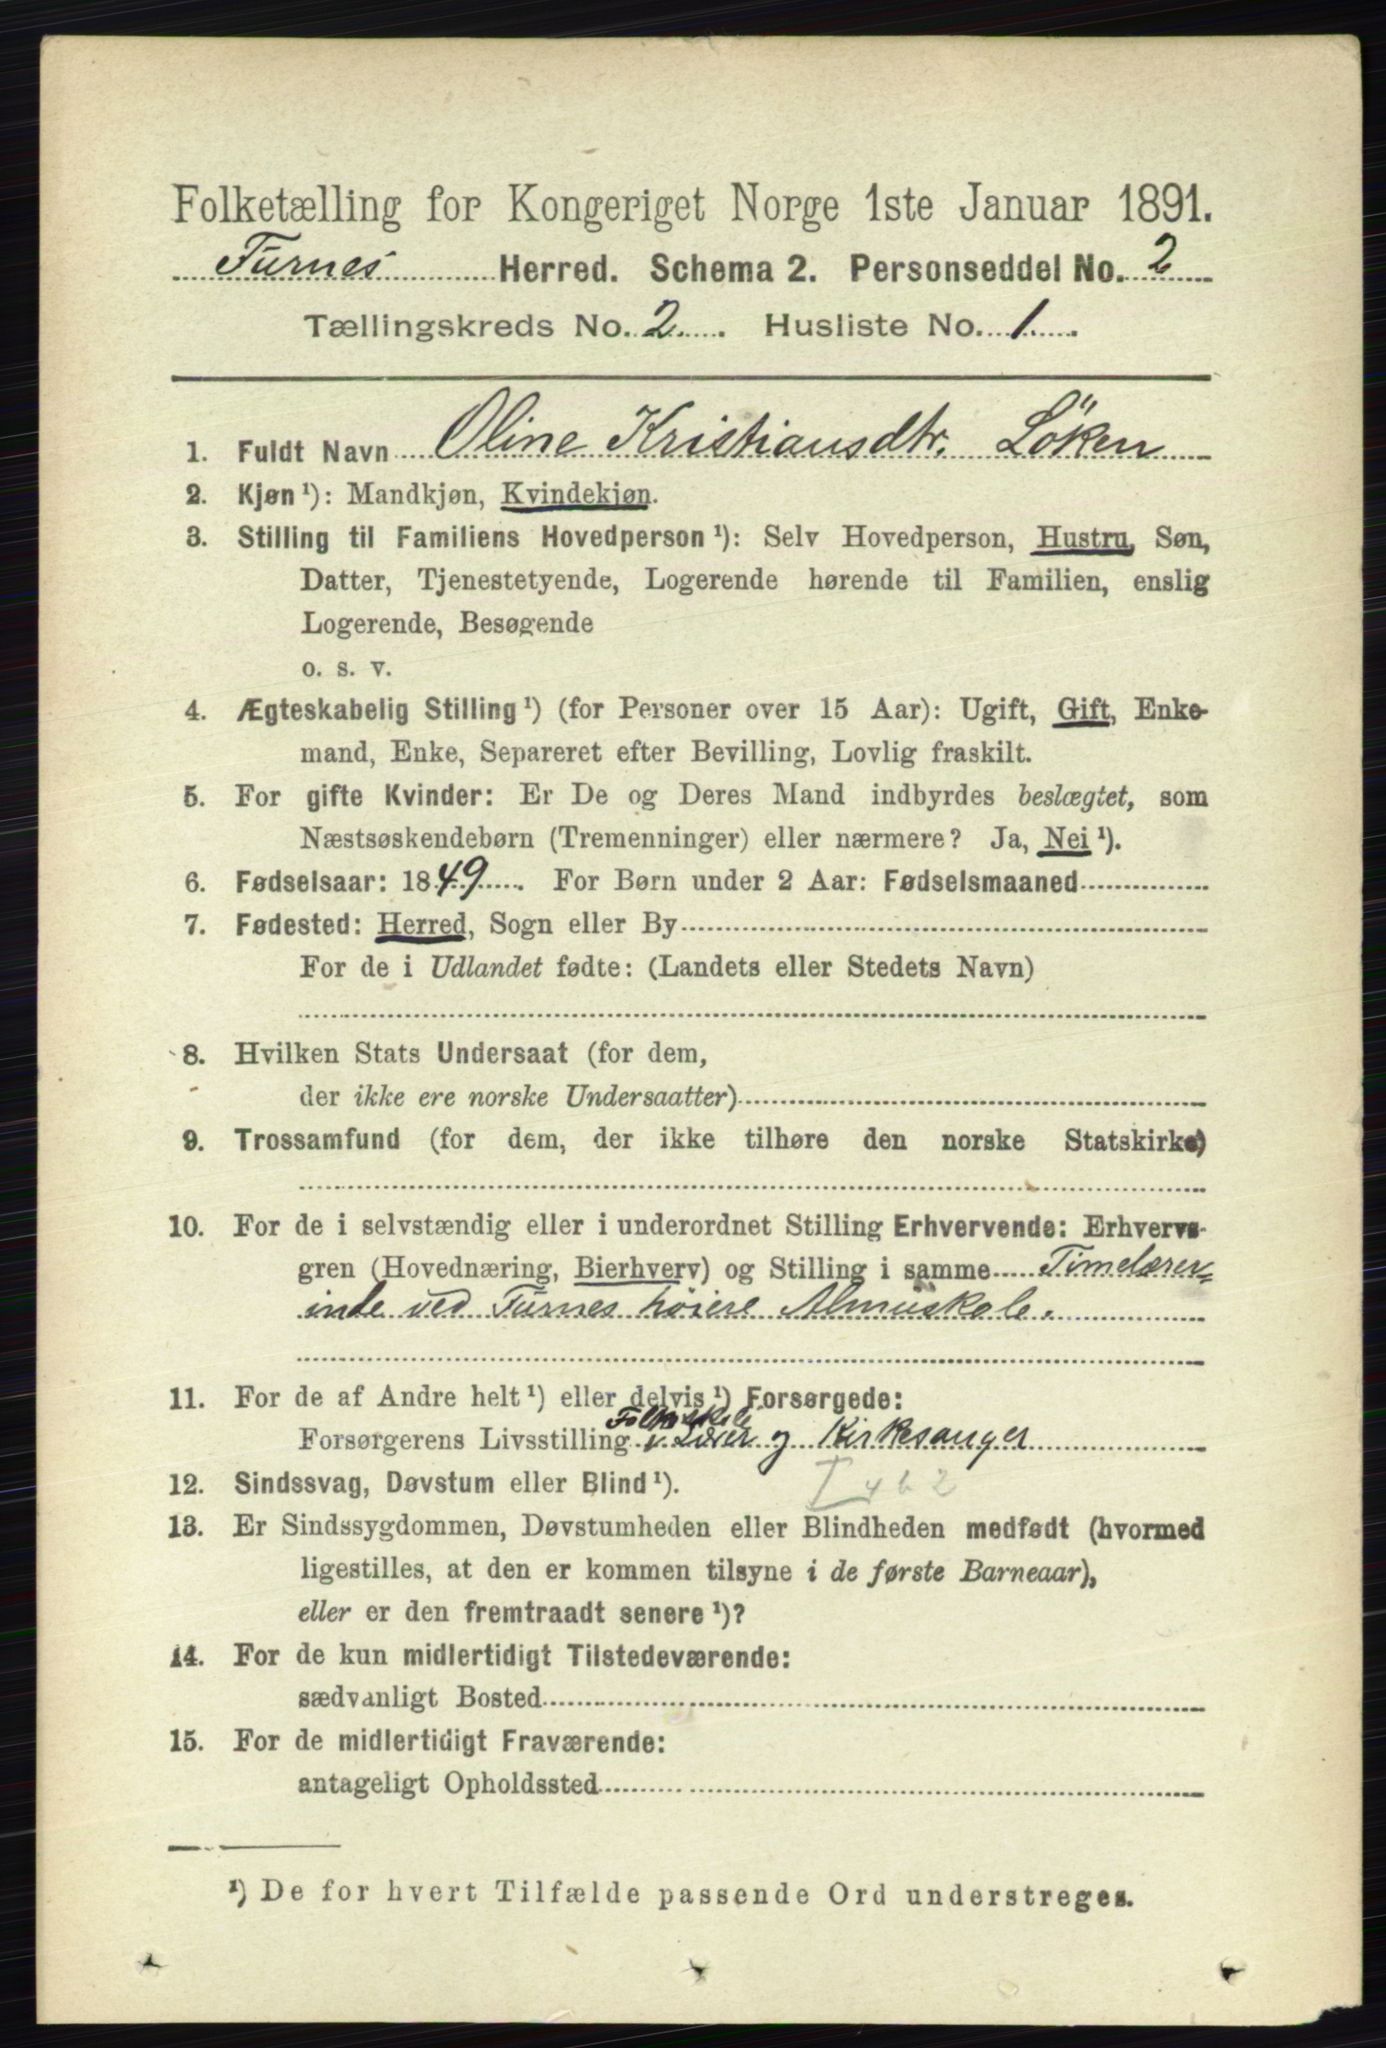 Folketælling for Kongeriget Norge 1ste Januar 1891.
Furnes Herred. Schema 2. Personseddel No. 2
Tællingskreds No. 2. Husliste No. 1
1. Fuldt Navn Oline Kristiansdtr. Löken
2. Kjøn¹): Mandkjøn, Kvindekjøn.
3. Stilling til Familiens Hovedperson¹): Selv Hovedperson, Hustru, Søn,
Datter, Tjenestetyende, Logerende hørende til Familien, enslig
Logerende, Besøgende
o. s. v.
4. Ægteskabelig Stilling¹) (for Personer over 15 Aar): Ugift, Gift, Enke-
mand, Enke, Separeret efter Bevilling, Lovlig fraskilt.
5. For gifte Kvinder: Er De og Deres Mand indbyrdes beslægtet, som
Næstsøskendebørn (Tremenninger) eller nærmere? Ja, Nei¹).
6. Fødselsaar: 1849. For Børn under 2 Aar: Fødselsmaaned
7. Fødested: Herred, Sogn eller By
For de i Udlandet fødte: (Landets eller Stedets Navn)
8. Hvilken Stats Undersaat (for dem,
der ikke ere norske Undersaatter)
9. Trossamfund (for dem, der ikke tilhøre den norske Statskirke)
10. For de i selvstændig eller i underordnet Stilling Erhvervende: Erhvervs-
gren (Hovednæring, Bierhverv) og Stilling i samme Timelærer=
inde ved Furnes høiere Almuskole.
11. For de af Andre helt¹) eller delvis¹) Forsørgede:
Folkeskole
Forsørgerens Livsstilling Lærer og Kirkesanger
12. Sindssvag, Døvstum eller Blind¹).
13. Er Sindssygdommen, Døvstumheden eller Blindheden medfødt (hvormed
ligestilles, at den er kommen tilsyne i de første Barneaar),
eller er den fremtraadt senere¹)?
14. For de kun midlertidigt Tilstedeværende:
sædvanligt Bosted
15. For de midlertidigt Fraværende:
antageligt Opholdssted
¹) De for hvert Tilfælde passende Ord understreges.